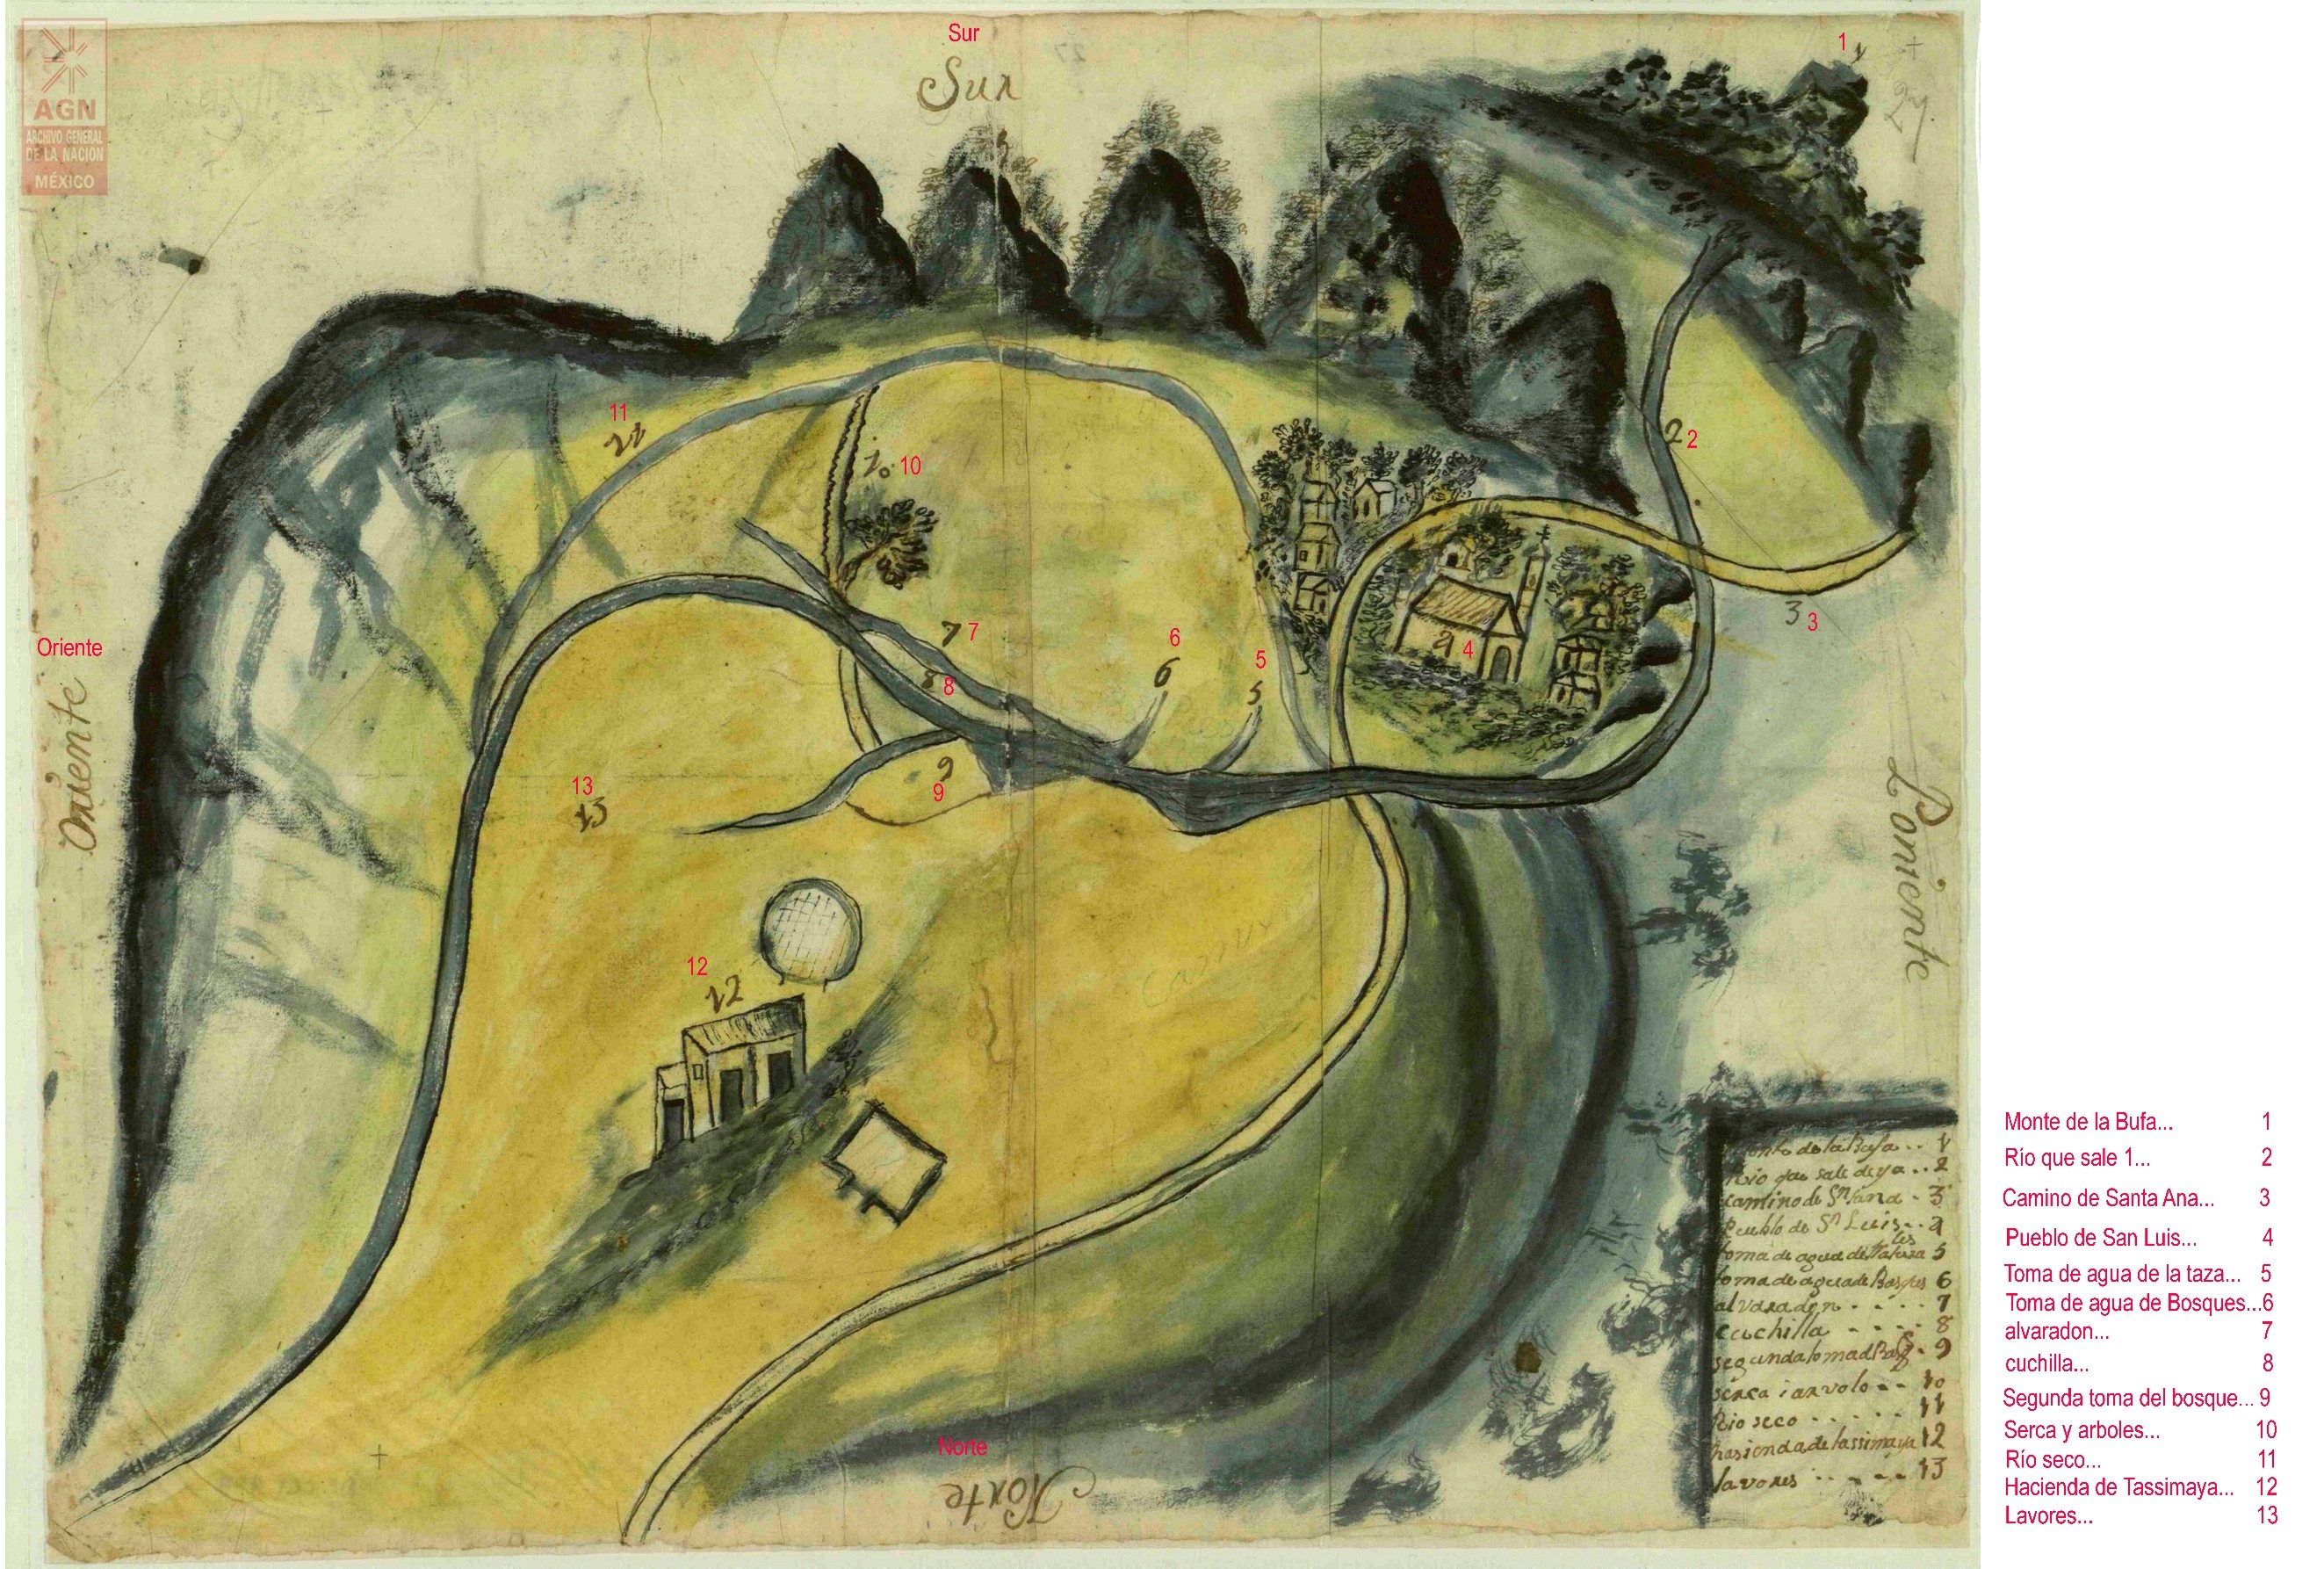 Sur
Sur
1
1
27
27
AGN
ARCHIVO GENERAL
DE LA NACIÓN
MÉXICO
11
11
10
10
2
2
3
3
Oriente
Oriente
7
7
6
6
5
5
4
4
8
8
9
9
13
13
12
12
Poniente
Norte
Norte
monte de la Bufa . . 1
Rio que sale de ya . . 2
camino de Sta Ana . 3
Pueblo de Sn Luis . . 4
toma de agua de 5
toma de agua de Bosques 6
alvaradon . . . . 7
cuchilla . . . . 8
segunda toma d . 9
serca i arvolo . . 10
Rio seco . . . . . 11
hasienda de tassimaya 12
lavores . . . . 13
Monte de la Bufa... 1
Río que sale 1... 2
Camino de Santa Ana... 3
Pueblo de San Luis... 4
Toma de agua de la taza... 5
Toma de agua de Bosques...6
alvaradon... 7
cuchilla... 8
Segunda toma del bosque... 9
Serca y arboles... 10
Río seco... 11
Hacienda de Tassimaya... 12
Lavores... 13